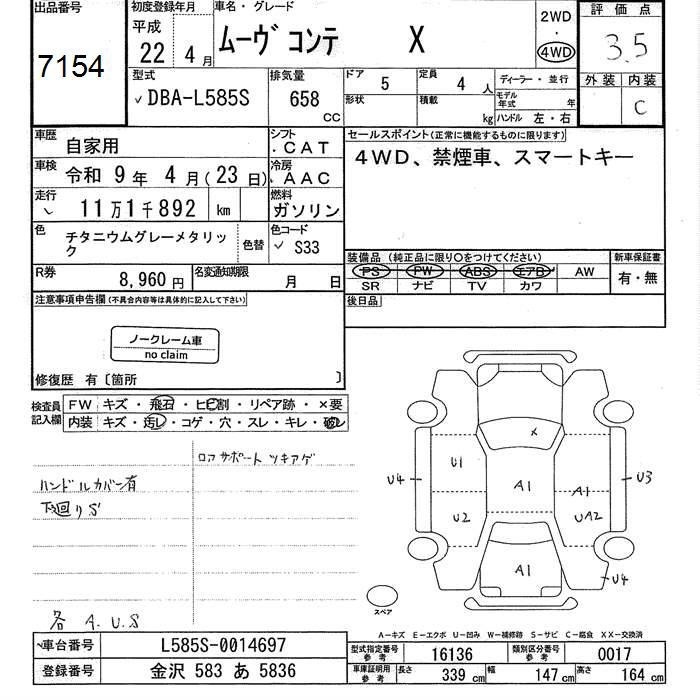 出品番号
7154
初度登録年月
平成
22 年 4 月
車名・グレード
ムーヴ コンテ X
2WD
・
4WD
評価点
3.5
外装 内装
C
型式
DBA-L585S
排気量
658
CC
ドア 5
形状
定員 4 人
積載 kg
ディーラー・並行
モデル年式 年
ハンドル 左・右
車歴 自家用
シフト CAT
車検 令和 9 年 4 月(23 日)
冷房 AAC
走行 11万1千892 km
燃料 ガソリン
色 チタニウムグレーメタリック
色替
色コード S33
R券 8,960 円
名変通知期限 月 日
セールスポイント(正常に機能するものに限ります)
4WD、禁煙車、スマートキー
装備品 (純正品に限り○をつけてください)
PS PW ABS エアB AW
SR ナビ TV カワ
新車保証書
有・無
後日品
注意事項申告欄(不具合内容等は具体的に記入して下さい)
ノークレーム車
no claim
修復歴 有〔箇所 〕
検査員記入欄
FW キズ・飛石・ヒビ割・リペア跡・×要
内装 キズ・汚レ・コゲ・穴・スレ・キレ・破レ
ロアサポートツキアゲ
ハンドルカバー有
下廻りS
各 A.U.S
×
U1
A1
A1
U4
U3
U2
UA2
A1
U4
スペア
A―キズ E―エクボ U―凹み W―補修跡 S―サビ C―腐食 XX―交換済
車台番号 L585S-0014697
登録番号 金沢 583 あ 5836
型式指定番号 参考 16136
類別区分番号 参考 0017
車庫証明用 参考 長さ 339 cm 幅 147 cm 高さ 164 cm